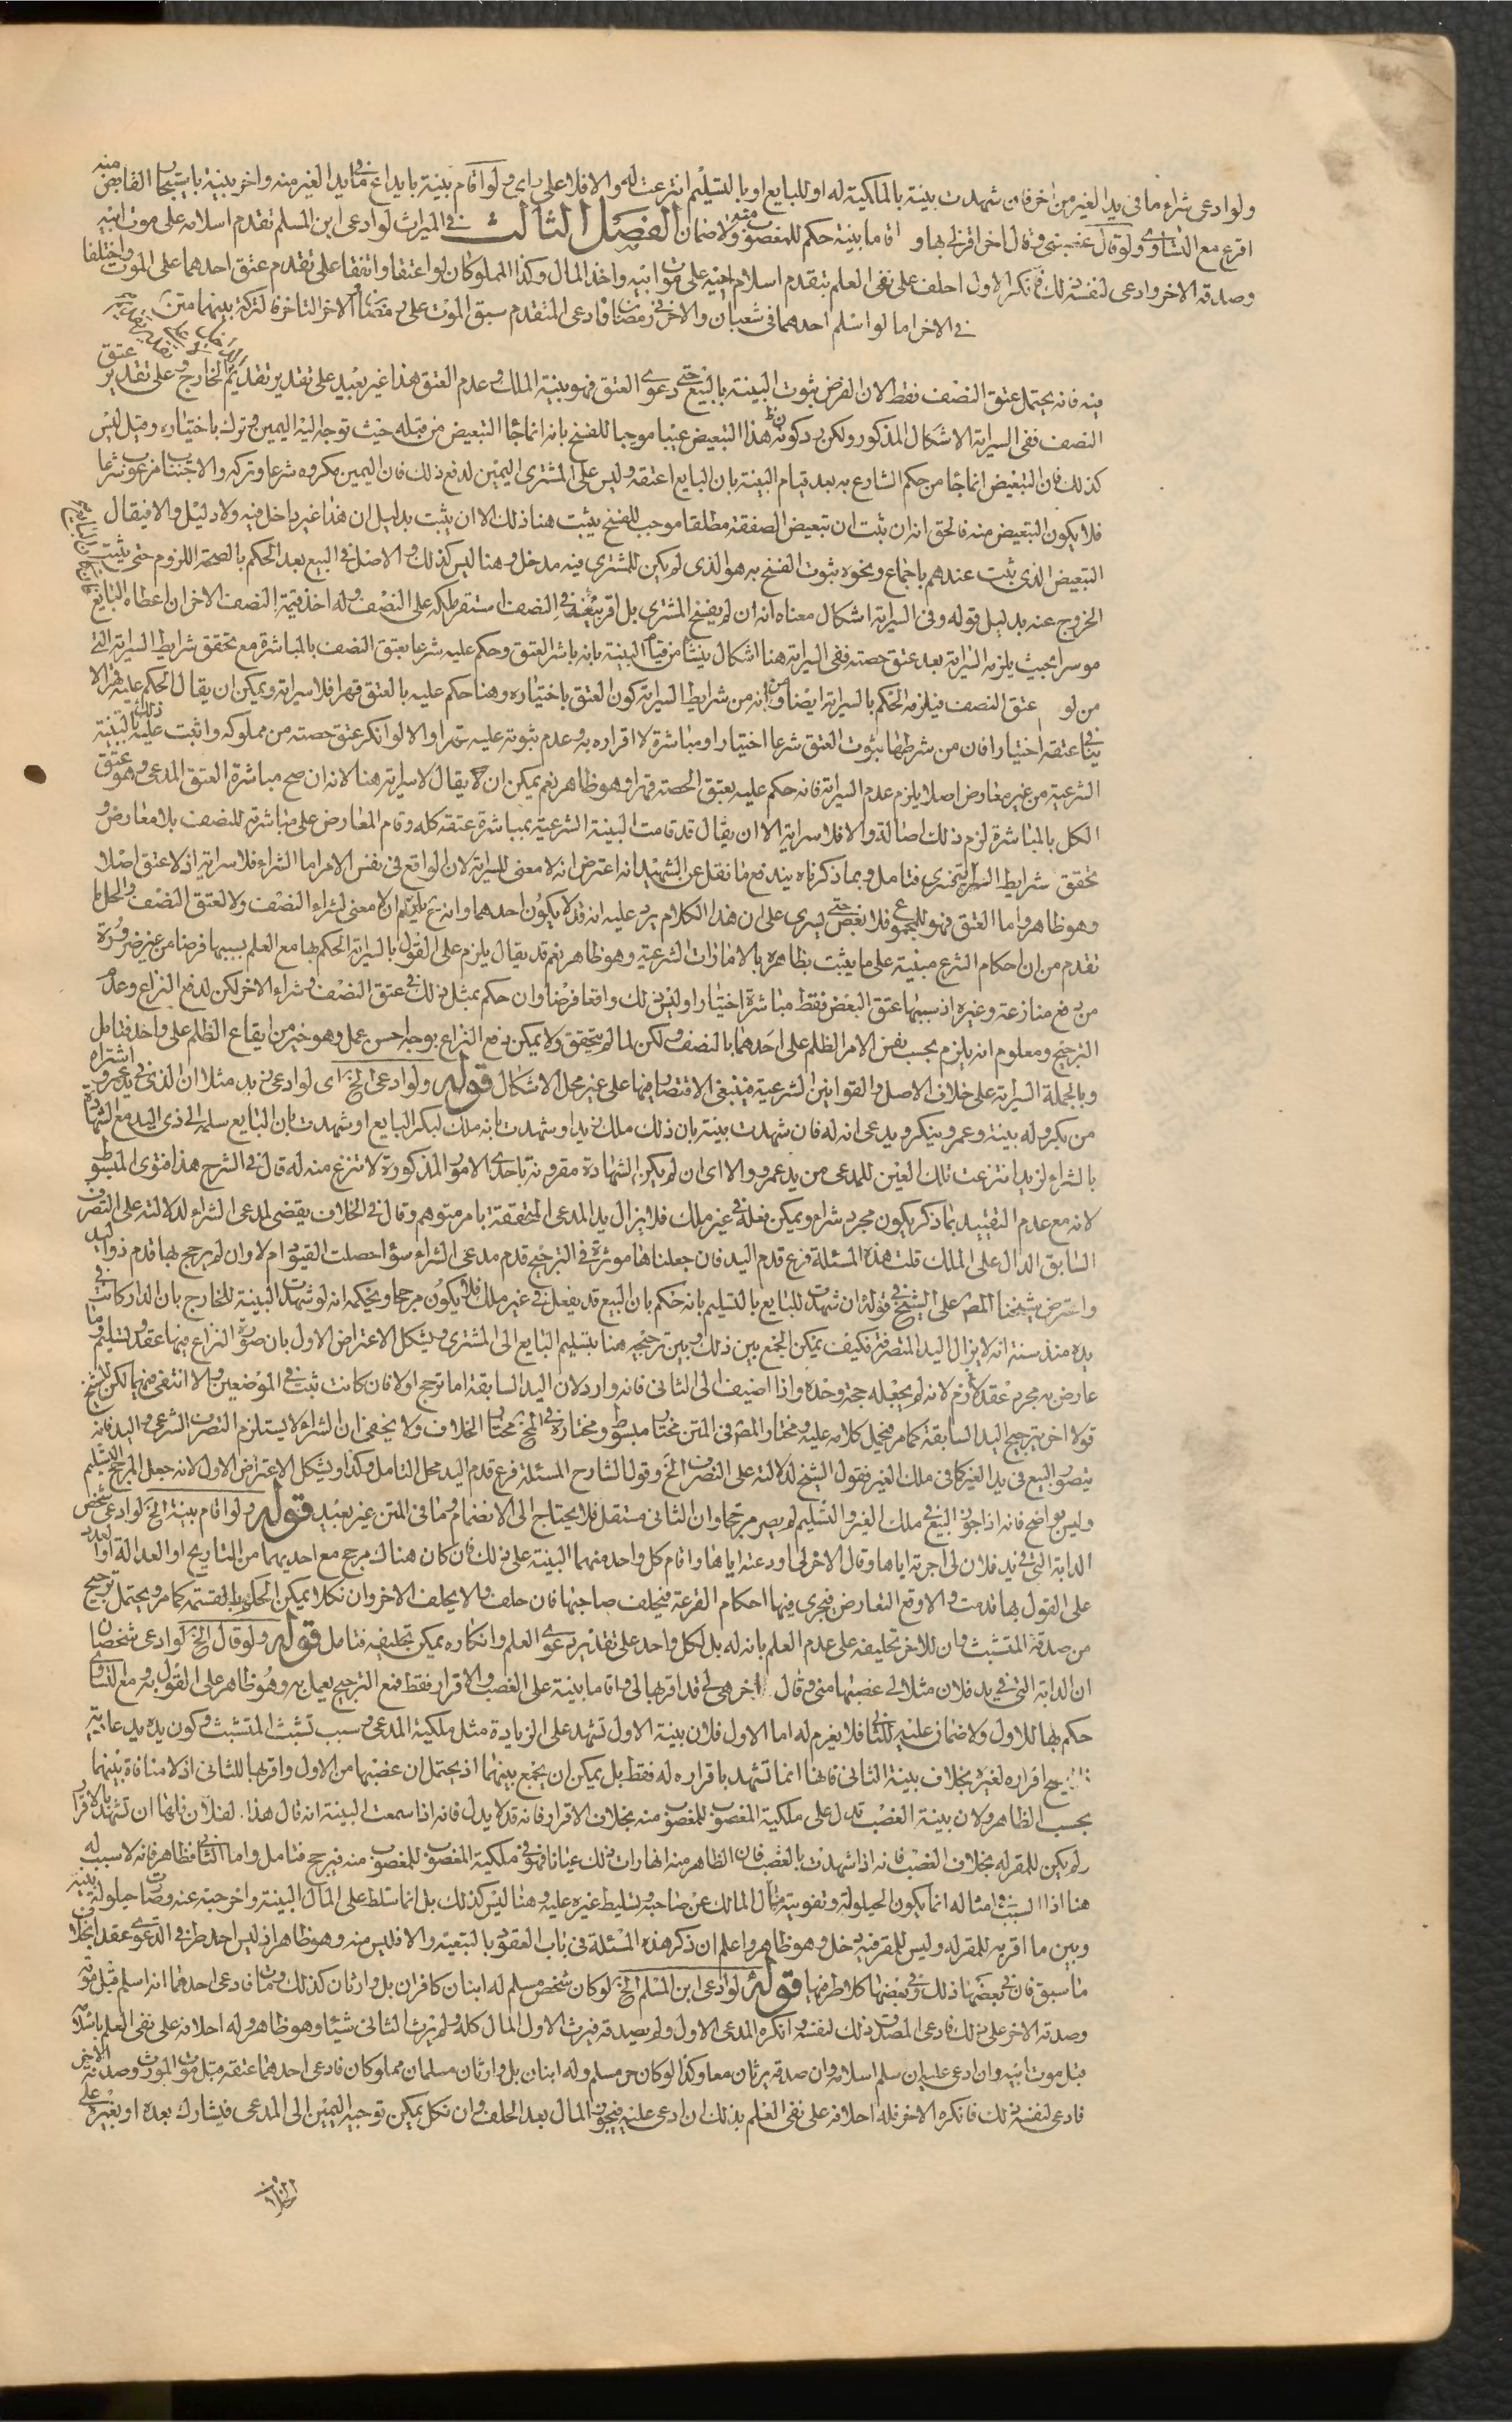 ولو ادعى شراء ما فى يد الغير من اخر فان شهدت بينة بالملكية له او للبايع او بالتسليم انتزعت له والا فلا على راى ولو اقام بينة بايداع ما فى يد الغير منه واخر بينة باستيجار القابض منه
اقرع مع التساوى ولو قال غصبنى وقال اخر اقر لى بها و اقاما بينة حكم للمغصوب منه ولا ضمان الفصل الثالث فى الميراث لو ادعى ابن المسلم تقدم اسلامه على موت ابيه
وصدقه الاخر وادعى لنفسه ذلك فانكر الاول احلف على نفى العلم بتقدم اسلام اخيه على موت ابيه واخذ المال وكذا المملوكان لو اعتقا واتفقا على تقدم عتق احدهما على الموت واختلفا
فى الاخر اما لو اسلم احدهما فى شعبان والاخر فى رمضان فادعى المتقدم سبق الموت على رمضان والاخر التاخر فالتركة بينهما
فيه فانه يحتمل عتق النصف فقط لان الفرض ثبوت البينة بالبيع حتى دعوى العتق فهو بينة الملك وعدم العتق هذا غير بعيد على تقدير تقديم الخارج وعلى تقدير عتق
النصف ففى السراية الاشكال المذكور ولكن يرد كون هذا التبعيض عيبا موجبا للفسخ بانه انما جاء التبعيض من قبله حيث توجه اليه اليمين وترك باختياره وقيل ليس
كذلك فان التبعيض انما جاء من حكم الشارع به بعد قيام البينة بان البايع اعتقه وليس على المشترى اليمين لدفع ذلك فان اليمين مكروه شرعا وتركه والاجتناب مرغوب شرعا
فلا يكون التبعيض منه فالحق انه ان ثبت ان تبعيض الصفقة مطلقا موجب للفسخ يثبت هنا ذلك الا ان يثبت بدليل ان هذا غير داخل فيه ولا دليل والا فيقال
التبعيض الذى ثبت عندهم باجماع ونحوه ثبوت الفسخ به هو الذى لم يكن للمشترى فيه مدخل وهنا ليس كذلك والاصل فى البيع بعد الحكم بالصحة اللزوم حتى يثبت
الخروج عنه بدليل قوله وفى السراية اشكال معناه انه ان لم يفسخ المشترى بل اقر بيعه فى النصف استقر ملكه على النصف وله اخذ قيمة النصف الاخر ان اعطاه البايع
موسرا بحيث يلزمه السراية بعد عتق حصته ففى السراية هنا اشكال ينشا من قيام البينة بانه باشر العتق وحكم عليه شرعا بعتق النصف بالمباشرة مع تحقق شرايط السراية التى
من لو عتق النصف فيلزمه الحكم بالسراية ايضا ومن انه من شرايط السراية كون العتق باختياره وهنا حكم عليه بالعتق قهرا فلا سراية ويمكن ان يقال الحكم عليه قهرا لا
ينافى عتقه اختيارا فان من شرطها ثبوت العتق شرعا اختيارا ومباشرة لا اقراره به وعدم ثبوته عليه قهرا والا لو انكر عتق حصته من مملوكه واثبت عليه ذلك بالبينة
الشرعية من غير معارض اصلا يلزم عدم السراية فانه حكم عليه بعتق الحصة قهرا وهو ظاهر نعم يمكن ان يقال لا سراية هنا لانه ان صح مباشرة العتق المدعى وهو عتق
الكل بالمباشرة لزم ذلك اصالة والا فلا سراية الا ان يقال قد قامت البينة الشرعية بمباشرة عتقه كله وقام المعارض على مباشرته للنصف بلا معارض و
تحقق شرايط فتامل وبما ذكرناه يندفع ما نقل عن الشهيد انه اعترض انه لا معنى للسراية لان الواقع فى نفس الامر اما الشراء فلا سراية اذ لا عتق اصلا
وهو ظاهر واما العتق فهو للمجموع فلا بعض حتى يسرى على ان هذا الكلام يرد عليه انه قد لا يكون احدهما وانه يلزم ان لا معنى لشراء النصف ولا لعتق النصف والحل ما
تقدم من ان احكام الشرع مبنية على ما يثبت بظاهره بالامارات الشرعية وهو ظاهر نعم قد يقال يلزم على القول بالسراية الحكم بها مع العلم بسببها فرضا من غير ضرورة
من دفع منازعة وغيره اذ سببها عتق البعض فقط مباشرة اختيارا وليس ذلك واقعا فرضا وان حكم بمثل ذلك فى عتق النصف وشراء الاخر لكن لدفع النزاع وعدم
الترجيح ومعلوم انه يلزم بحسب نفس الامر الظلم على احدهما بالنصف ولكن لما لم يتحقق ولا يمكن دفع النزاع بوجه احسن عمل وهو خير من ايقاع الظلم على واحد فتامل
وبالجملة السراية على خلاف الاصل والقوانين الشرعية فينبغى الاقتصار فيها على غير محل الاشكال قوله ولو ادعى الخ اى لو ادعى زيد مثلا ان الذى فى يد عمرو اشتراه
من بكر وله بينة وعمرو ينكر ويدعى انه له فان شهدت بينة بان ذلك ملك زيد او شهدت بانه ملك لبكر البايع او شهدت بان البايع سلمه الى ذى اليد مع الشهادة
بالشراء لزيد انتزعت تلك العين للمدعى من يد عمرو والا اى ان لم يكن الشهادة مقرونة باحدى الامور المذكورة لا تنزع منه له قال فى الشرح هذا فتوى المبسوط
لانه مع عدم التقييد بما ذكر يكون مجرد شراء ويمكن فعله فى غير ملك فلا يزال يد المدعى المتحققة بامر متوهم وقال فى الخلاف يقضى لمدعى الشراء لدلالته على التصرف
السابق الدال على الملك قلت هذه المسئلة فرع قدم اليد فان جعلناها موثرة فى الترجيح قدم مدعى الشراء سواء حصلت القيود ام لا وان لم يرجح بها قدم ذو اليد
واعترض شيخنا المص على الشيخ فى قوله ان شهدت للبايع بالتسليم بانه حكم بان البيع قد يفعل فى غير ملك فلا يكون مرجحا ويحكمه انه لو شهدت البينة للخارج بان الدار كانت فى
يده منذ سنة انه لا يزال اليد المتصرفة فكيف يمكن الجمع بين ذلك وبين ترجيحه هنا بتسليم البايع الى المشترى ويشكل الاعتراض الاول بان صورة النزاع فيها عقد وتسليم وما
عارض به مجرد عقد لانه لم يجعله حجة وحده واذا اضيف الى الثانى فانه وارد لان اليد السابقة اما ترجح اولا فان كانت ثبت فى الموضعين والا انتفى فيهما لكن للشيخ
قولا اخر بترجيح اليد السابقة كما مر فيحمل كلامه عليه ومختار المص فى المتن مختار مبسوط ومختاره فى مختار الخلاف ولا يخفى ان الشراء لا يستلزم التصرف الشرعى واليد فانه
يتصور البيع فى يد الغير كما فى ملك الغير فقول الشيخ لدلالته على التصرف الخ وقول الشارح المسئلة فرع قدم اليد محل التامل وكذا ويشكل الاعتراض الاول لانه جعل المرجح التسليم
وليس بواضح فانه اذا جوز البيع فى ملك الغير والتسليم لم يصر مرجحا وان الثانى مستقل فلا يحتاج الى الانضمام وما فى المتن غير بعيد قوله ولو اقام بينة الخ لو ادعى شخص
الدابة التى فى يد فلان لى اجرته اياها وقال الاخر لى اودعته اياها واقام كل واحد منهما البينة على ذلك فان كان هناك مرجح مع احديهما من التاريخ او العدالة او العدد
على القول بها قدمت والا وقع التعارض فيجرى فيها احكام القرعة فيحلف صاحبها فان حلف والا يحلف الاخر وان نكلا يمكن الحكم بالقسمة كما مر ويحتمل ترجيح
من صدقه المتشبث وان للاخر تحليفه على عدم العلم بانه له بل لكل واحد على تقدير دعوى العلم وانكاره يمكن تحليفه فتامل قوله ولو قال الخ لو ادعى شخصان
ان الدابة التى فى يد فلان مثلا لى غصبها منى وقال اخر هى لى قد اقر بها لى واقاما بينة على الغصب والاقرار فقط فمع الترجيح يعمل به وهو ظاهر على القول به ومع التساوى
حكم بها للاول ولا ضمان عليه للثانى فلا يغرم له اما الاول فلان بينة الاول تشهد على الزيادة مثل ملكية المدعى وسبب تشبث المتشبث وكون يده يد عادية
اقراره لغيره بخلاف بينة الثانى فانها انما تشهد باقراره له فقط بل يمكن ان يجمع بينهما اذ يحتمل ان غصبها من الاول واقر بها للثانى اذ لا منافاة بينهما
بحسب الظاهر ولان بينة الغصب تدل على ملكية المغصوب للمغصوب منه بخلاف الاقرار فانه قد لا يدل فانه اذا سمعت البينة انه قال هذا لفلان فلها ان تشهد بالاقرار
ولم يكن للمقر له بخلاف الغصب فانه اذا شهدت بالغصب فان الظاهر منه انها رات ذلك عيانا فهو فى ملكية المغصوب للمغصوب منه فيرجح فتامل واما الثانى فظاهر فانه لا سبب له
هنا اذ السبب فى امثاله انما يكون الحيلولة وتفويت مال المالك عن صاحبه وتسليط غيره عليه وهنا ليس كذلك بل انما تسلط على المال البينة واخرجته عنه وصارت حيلولة بينه
وبين ما اقر به للمقر له وليس للمقر فيه دخل وهو ظاهر واعلم ان ذكر هذه المسئلة فى باب العقود بالتبعية والا فليس منه وهو ظاهر اذ ليس احد طرفى الدعوى عقد بخلاف
ما سبق فان فى بعضها ذلك وفى بعضها كلا طرفيها قوله لو ادعى ابن المسلم الخ لو كان شخص مسلم له ابنان كافران بل وارثان كذلك ومات فادعى احدهما انه اسلم قبل موته
وصدقه الاخر على ذلك فادعى المصدق ذلك لنفسه وانكره المدعى الاول ولم يصدقه فيرث الاول المال كله ولم يرث الثانى شيئا وهو ظاهر وله احلافه على نفى العلم باسلامه
قبل موت ابيه وان ادعى عليه ان سلم اسلامه وان صدقه يرثان معا وكذا لو كان حر مسلم وله ابنان بل وارثان مسلمان مملوكان فادعى احدهما عتقه قبل موت المورث وصدقه الاخر
فادعى لنفسه ذلك فانكره الاخر فله احلافه على نفى العلم بذلك ان ادعى عليه فيحوز المال بعد الحلف وان نكل يمكن توجيه اليمين الى المدعى فيشارك بعده او بغيره على